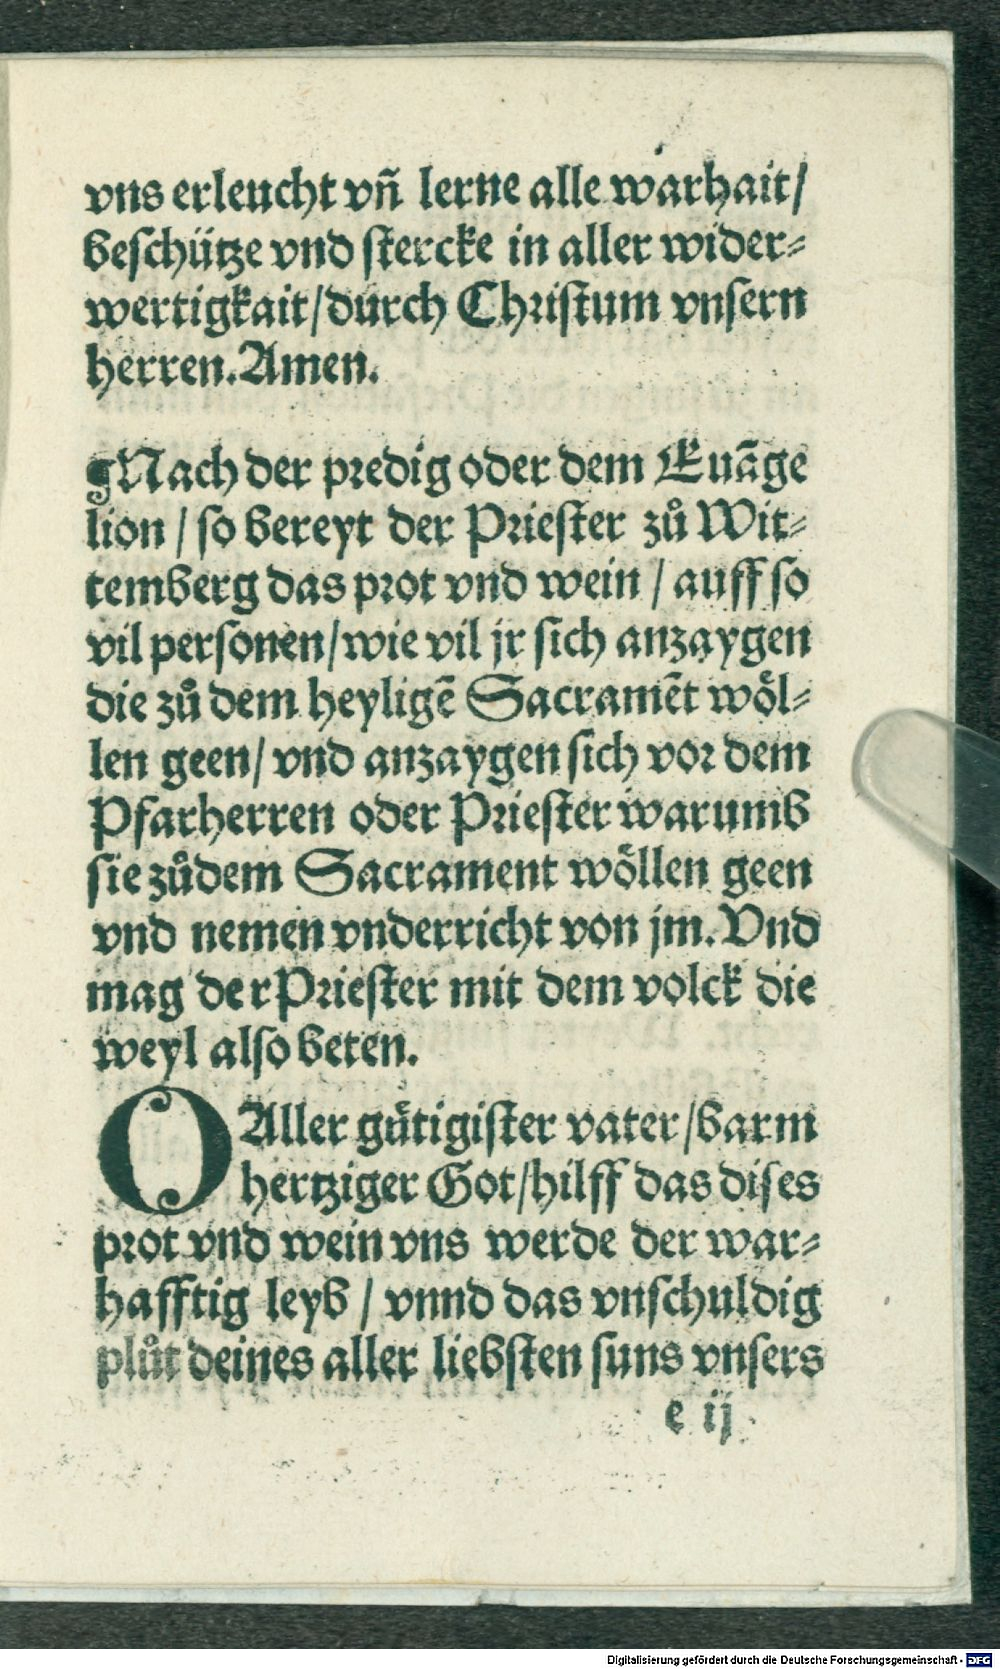 vns erleucht vn̄ lerne alle warhait/
beschütze vnd stercke in aller wider⸗
wertigkait/durch Christum vnsern
herren. Amen.
¶Nach der predig oder dem Euāge
lion / so bereyt der Priester zů Wit⸗
temberg das prot vnd wein / auff so
vil personen/wie vil jr sich anzaygen
die zů dem heyligē Sacramēt wöl⸗
len geen/ vnd anzaygen sich vor dem
Pfarherren oder Priester warumb
sie zůdem Sacrament wöllen geen
vnd nemen vnderricht von jm. Vnd
mag der Priester mit dem volck die
weyl also beten.
O Aller gütigister vater /barm
hertziger Got/hilff das dises
prot vnd wein vns werde der war⸗
hafftig leyb / vnnd das vnschuldig
plůt deines aller liebsten suns vnsers
e ij
Digitalisierung gefördert durch die Deutsche Forschungsgemeinschaft - DFG